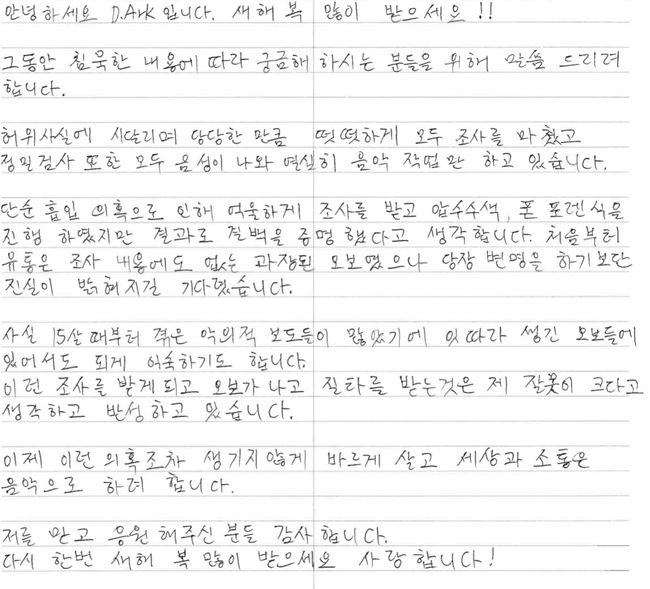 안녕하세요 D.Ark 입니다. 새해 복 많이 받으세요 !!
그동안 침묵한 내용에 따라 궁금해 하시는 분들을 위해 말씀 드리려
합니다.
허위사실에 시달리며 당당한 만큼 떳떳하게 모두 조사를 마쳤고
정밀검사 또한 모두 음성이 나와 열심히 음악 작업만 하고 있습니다.
단순 흡입 의혹으로 인해 억울하게 조사를 받고 압수수색, 폰 포렌식을
진행 하였지만 결과로 결백을 증명 했다고 생각합니다. 처음부터
유통은 조사 내용에도 없는 과장된 오보였으나 당장 변명을 하기보단
진실이 밝혀지길 기다렸습니다.
사실 15살때부터 겪은 악의적 보도들이 많았기에 잇따라 생긴 오보들에
있어서도 되게 익숙하기도 합니다.
이런 조사를 받게되고 오보가 나고 질타를 받는것은 제 잘못이 크다고
생각하고 반성하고 있습니다.
이제 이런 의혹조차 생기지않게 바르게 살고 세상과 소통은
음악으로 하려 합니다.
저를 믿고 응원해주신 분들 감사합니다.
다시 한번 새해 복 많이 받으세요 사랑합니다!